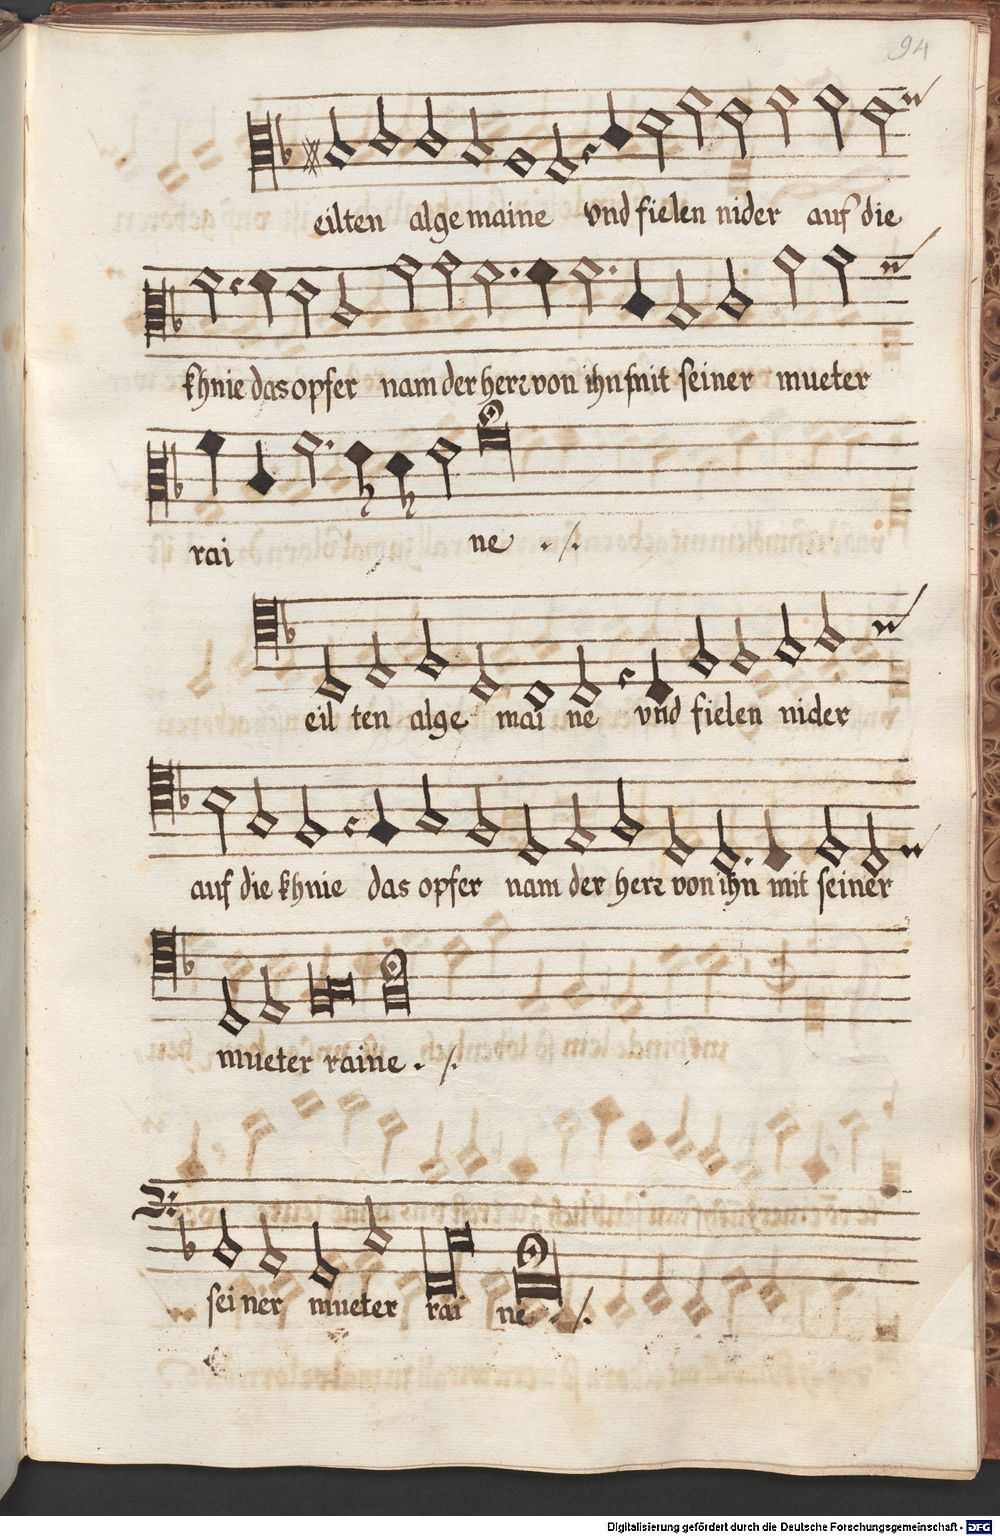 94
eilten algemaine vnd fielen nider auf die
khnie das opfer nam der herr von ihn mit seiner mueter
rai ne ./.
eil ten alge mai ne vnd fielen nider
auf die khnie das opfer nam der herr von ihn mit seiner
mueter raine ./.
seiner mueter rai ne ./.
Digitalisierung gefördert durch die Deutsche Forschungsgemeinschaft - DFG